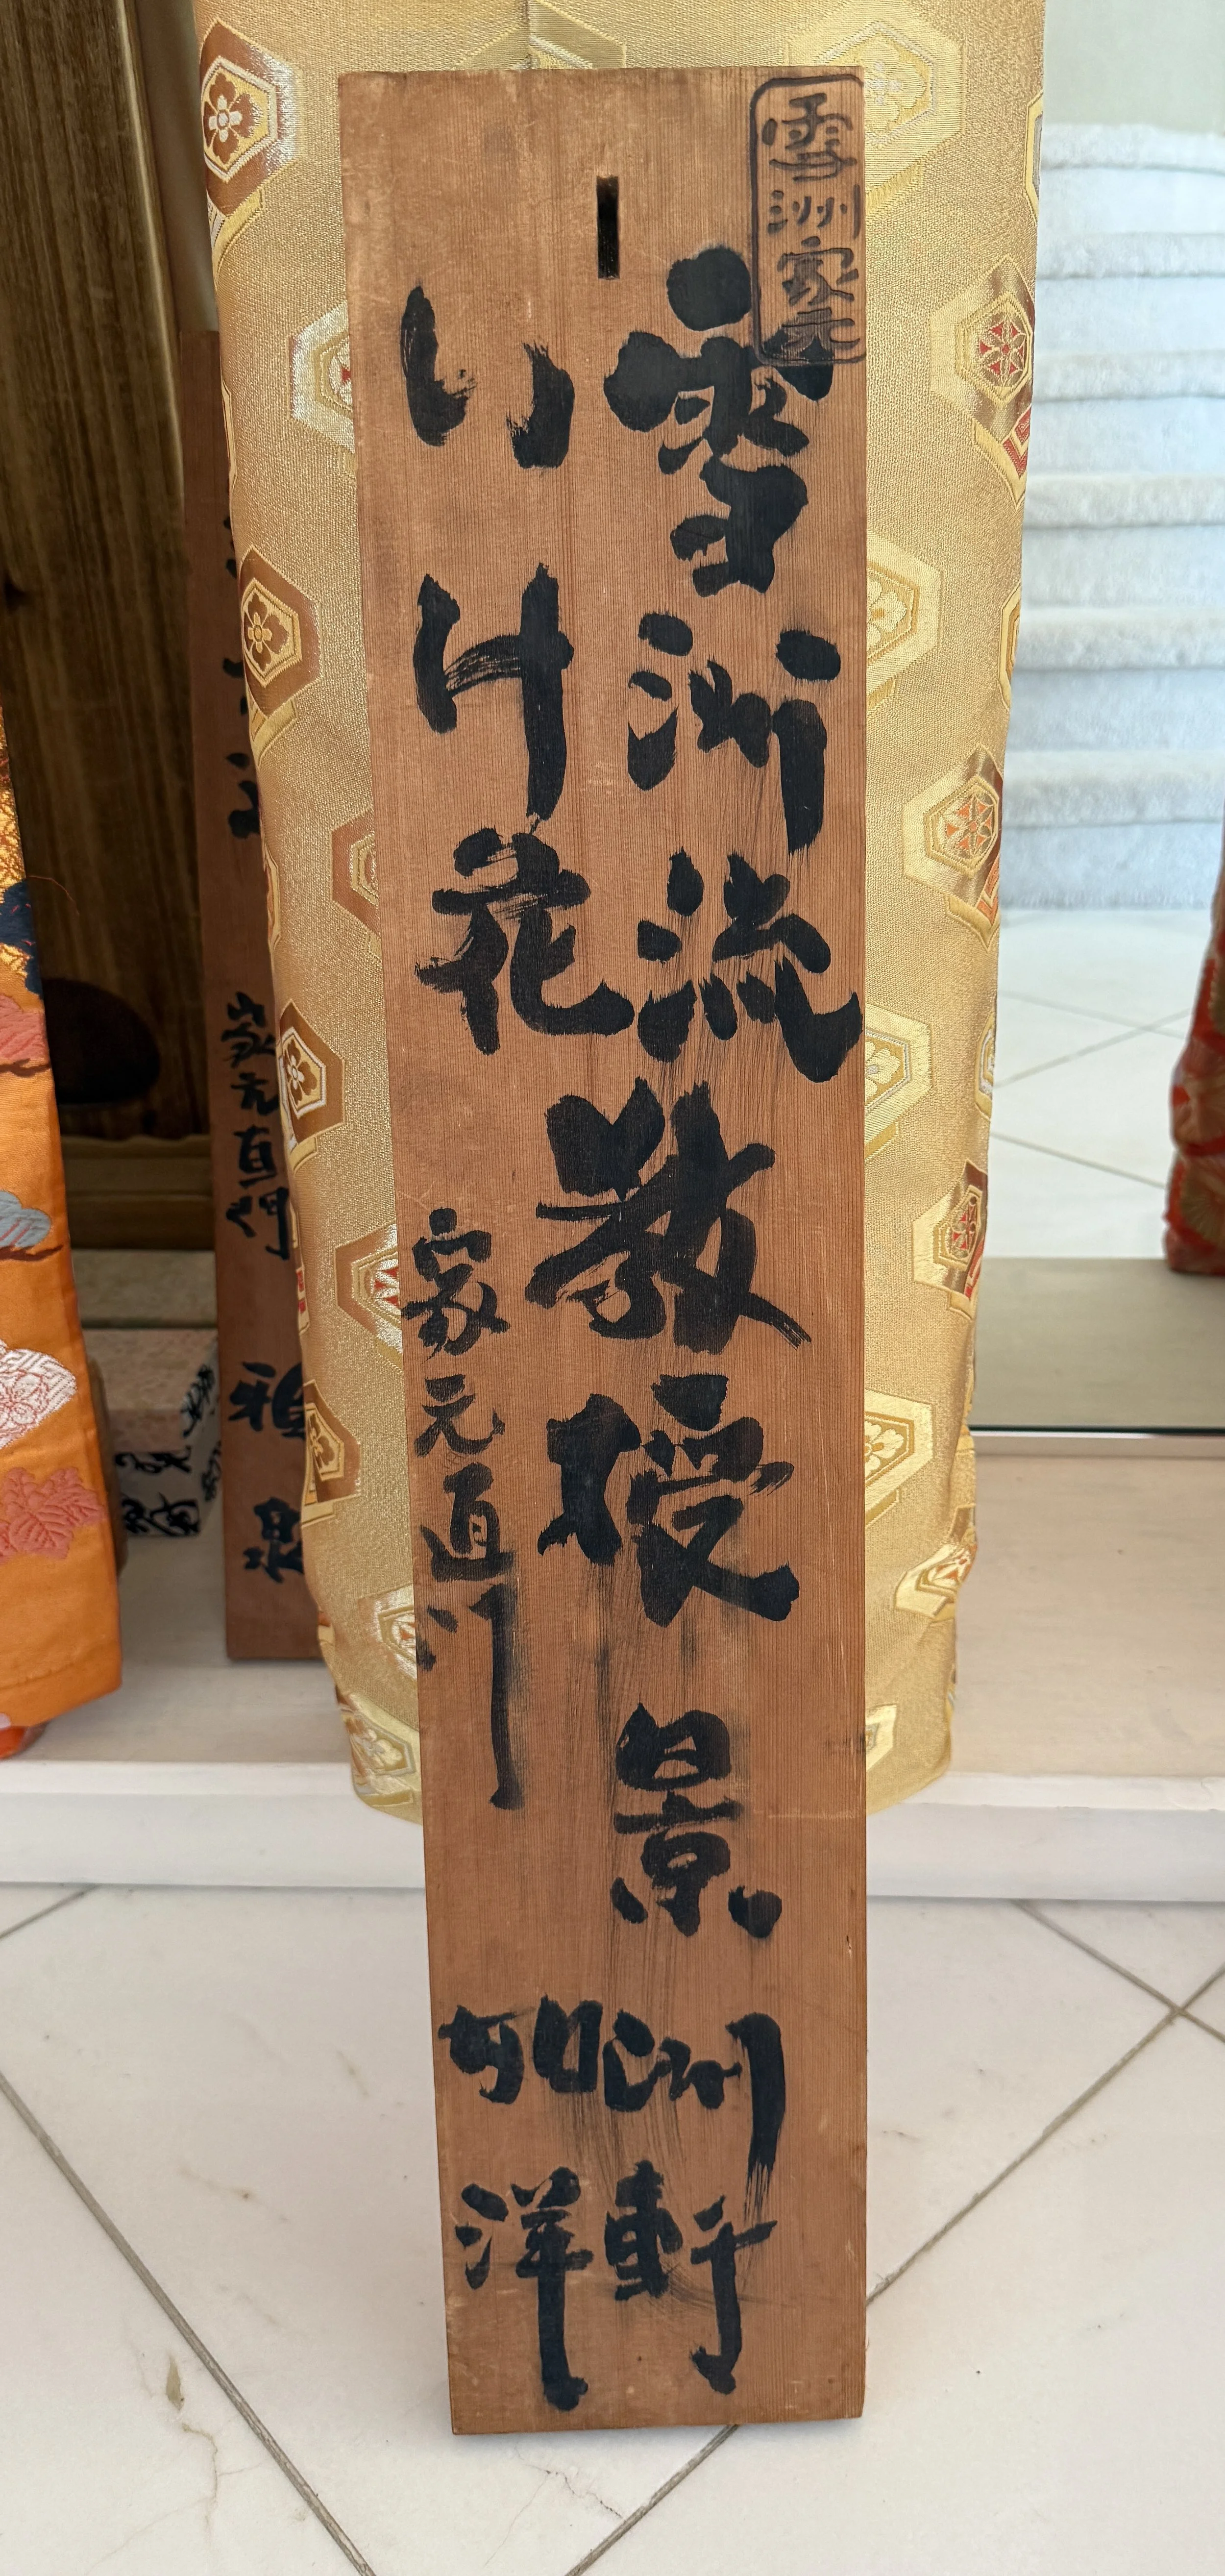 雪洲家元
雪洲流
いけ花
教授
家元直門
景洲軒
如洋
家元直門
雅泉